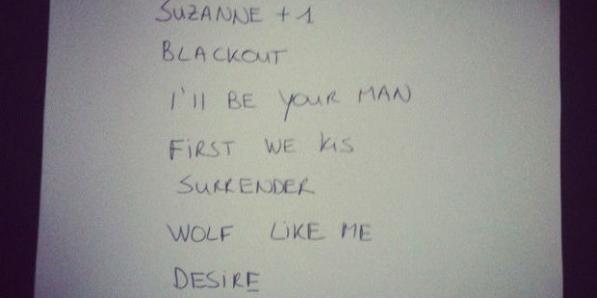 SUZANNE + 1
BLACKOUT
I'll BE YOUR MAN
FIRST WE KiS
SURRENDER
WOLF LIKE ME
DESIRE